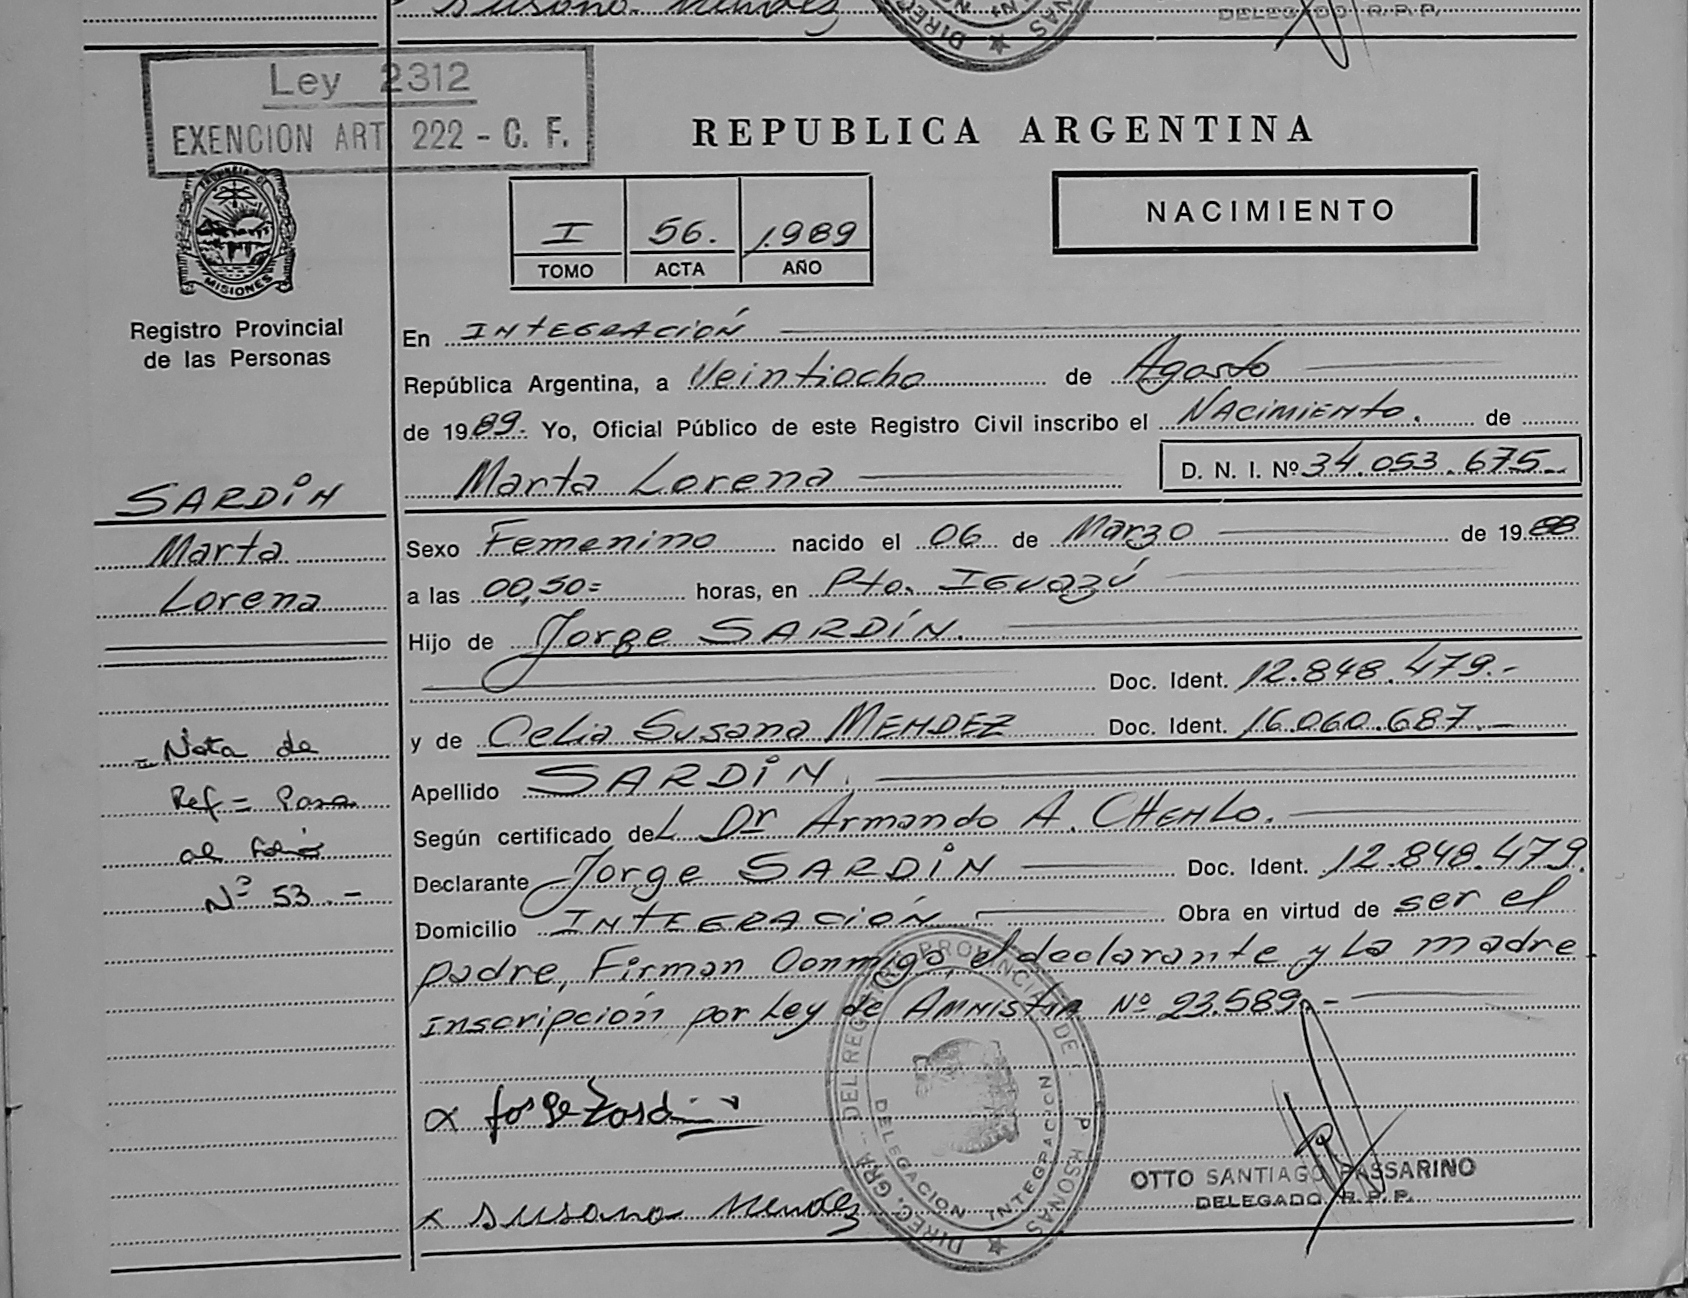 Susana Mendez
DELEGADO R.P.P.
Ley 2312
EXENCION ART 222 - C. F.
REPUBLICA ARGENTINA
NACIMIENTO
I 56. 1989
TOMO ACTA AÑO
PROVINCIA DE MISIONES
Registro Provincial
de las Personas
En INTEGRACIÓN
República Argentina, a Veintiocho de Agosto
de 1989. Yo, Oficial Público de este Registro Civil inscribo el NACIMIENTO. de
Marta Lorena D. N. I. Nº 34.053.675
SARDÍN
Marta
Lorena
Sexo Femenino nacido el 06 de Marzo de 1988
a las 00,50= horas, en Pto. IGUAZÚ
Hijo de Jorge SARDÍN.
Doc. Ident. 12.848.479.-
y de Celia Susana MENDEZ Doc. Ident. 16.060.687.
Apellido SARDÍN.
Según certificado deL Dr Armando A. CHEMLO.
Declarante Jorge SARDÍN Doc. Ident. 12.848.479.
Domicilio INTEGRACIÓN Obra en virtud de ser el
padre, Firman Conmigo, el declarante y La madre
inscripción por Ley de AMNISTIA Nº 23.589.-
= Nota de
Ref = Pasa
al folio
Nº 53.-
x Jorge Sardin
x Susana Mendez
DIREC. GRAL. DEL REGISTRO PROVINCIAL DE P RSONAS
DELEGACION INTEGRACION
OTTO SANTIAGO PASSARINO
DELEGADO R.P.P.